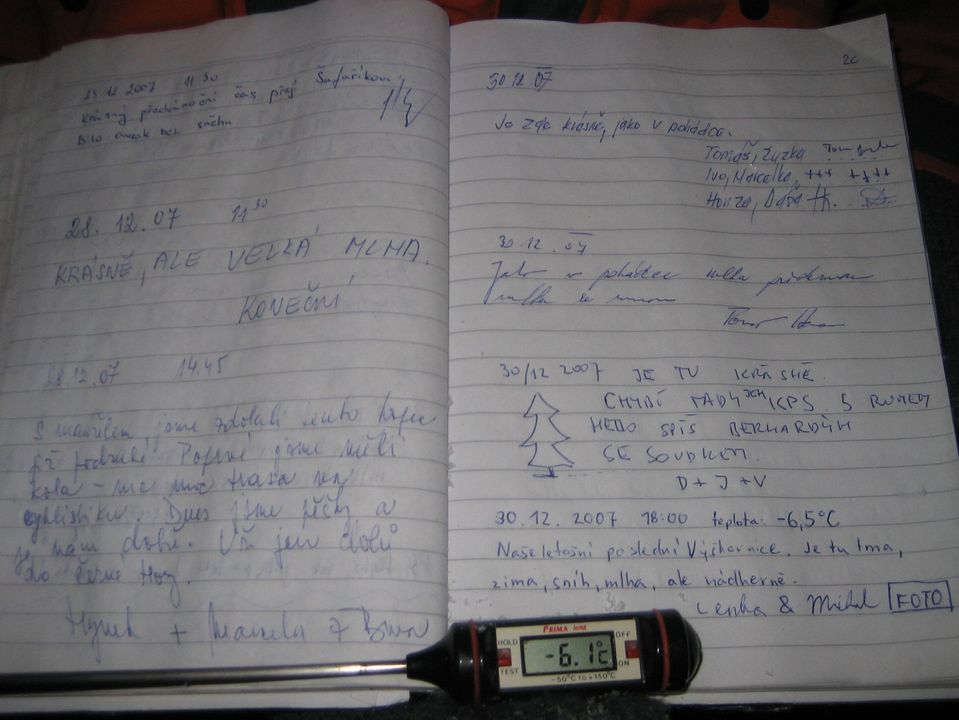 23.12 2007 11 30
Krásný předvánoční čas přejí Šafaříkovi
Bílo avšak bez sněhu
28. 12. 07 11 30
KRÁSNĚ, ALE VELKÁ MLHA.
KONEČNÍ
28 12. 07 14.45
S manželem jsme zdolali tento kopec
již podruhé. Poprvé jsme měli
kola - nic moc trasa na
cyklistiku. Dnes jsme pěšky a
je nám dobře. Už jen dolů
do Černé Hory.
Hynek + Marcela z Brna
20
30 12. 07
Je zde krásně, jako v pohádce.
Tomáš, Zuzka
Ivo, Marcelka, +++ ++++
Honza, Dáša
30. 12. 07
Jako v pohádce
30/12 2007 JE TU KRÁSNĚ.
CHYBÍ TADY JEN KPS. S RUMEM
NEBO SPÍŠ BERNARDÝN
SE SOUDKEM.
D + J + V
30. 12. 2007 18:00 teplota: -6,5°C
Naše letošní poslední Výchornice. Je tu tma,
zima, sníh, mlha, ale nádherně.
Lenka & Michal FOTO
PRIMA long
HOLD OFF
-6.1°C
TEST ON
-50°C TO +150°C